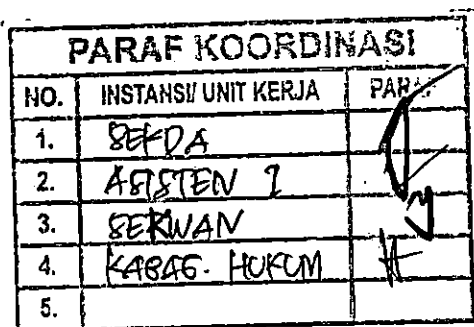 PARAF KOORDINASI
NO. INSTANSI/ UNIT KERJA PARAF
1. SEKDA
2. ASISTEN I
3. SEKWAN
4. KABAG. HUKUM
5.